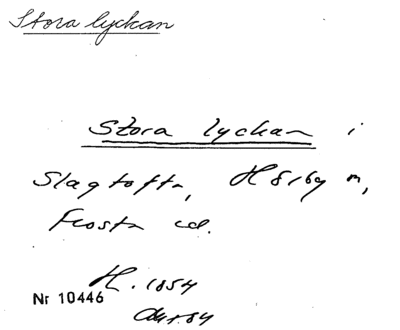 Stora lyckan
Stora lyckan i
Slagtofta, Hörby sn,
Frosta hd.
H. 1854
Nr 10446